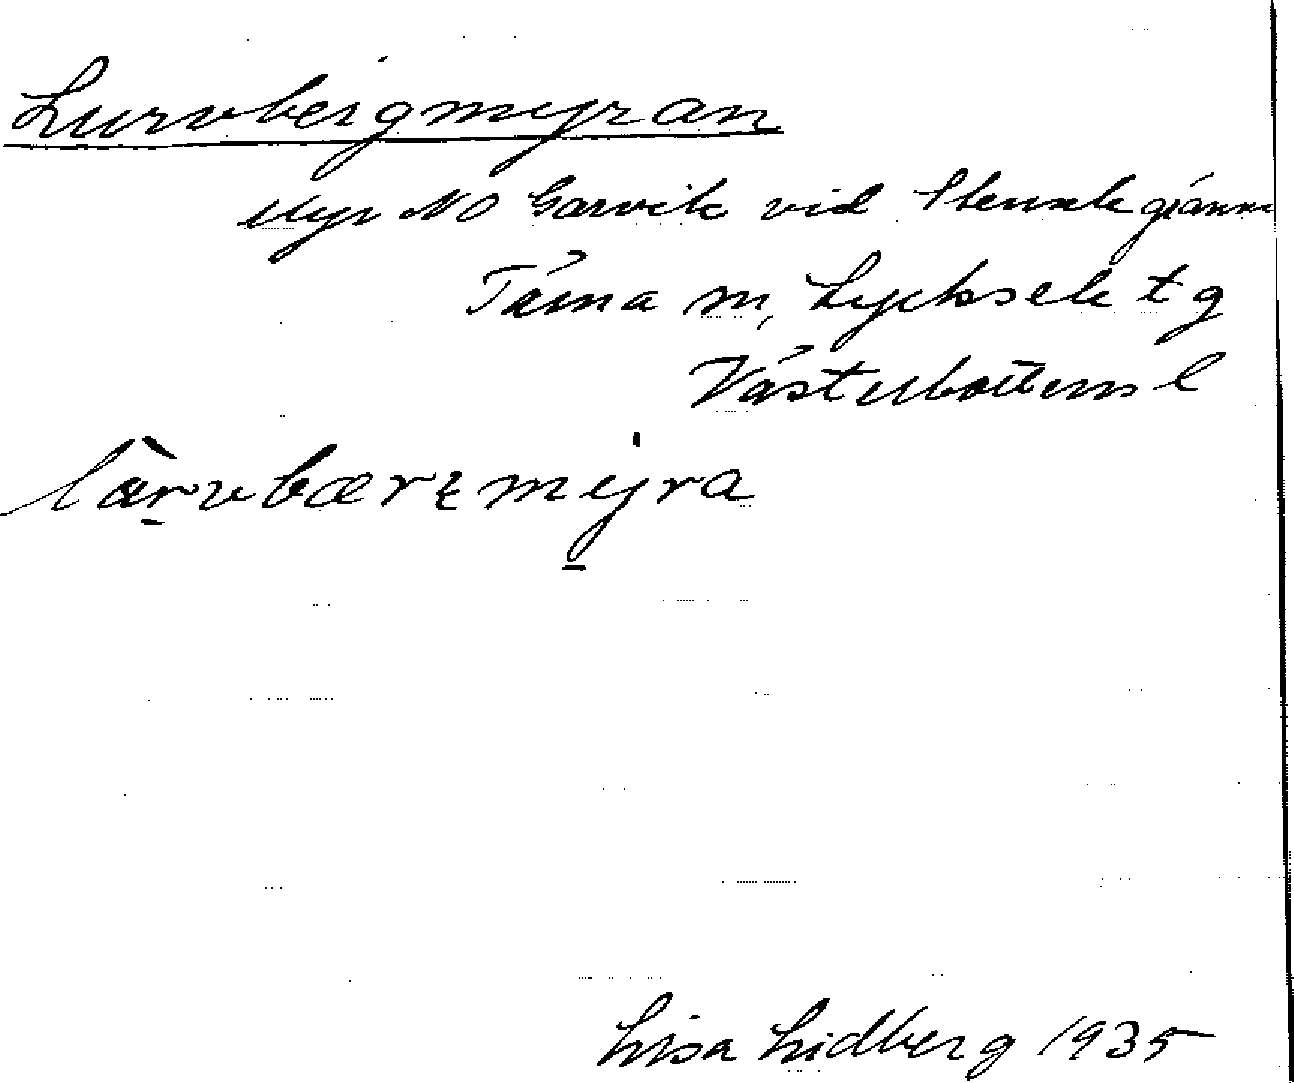 Lurvbergmyran
Myr NO Garvik vid Stensele gräns
Tärna sn, Lycksele tg
Västerbottens l
lärvbærɛmýra
Lisa Lidberg 1935